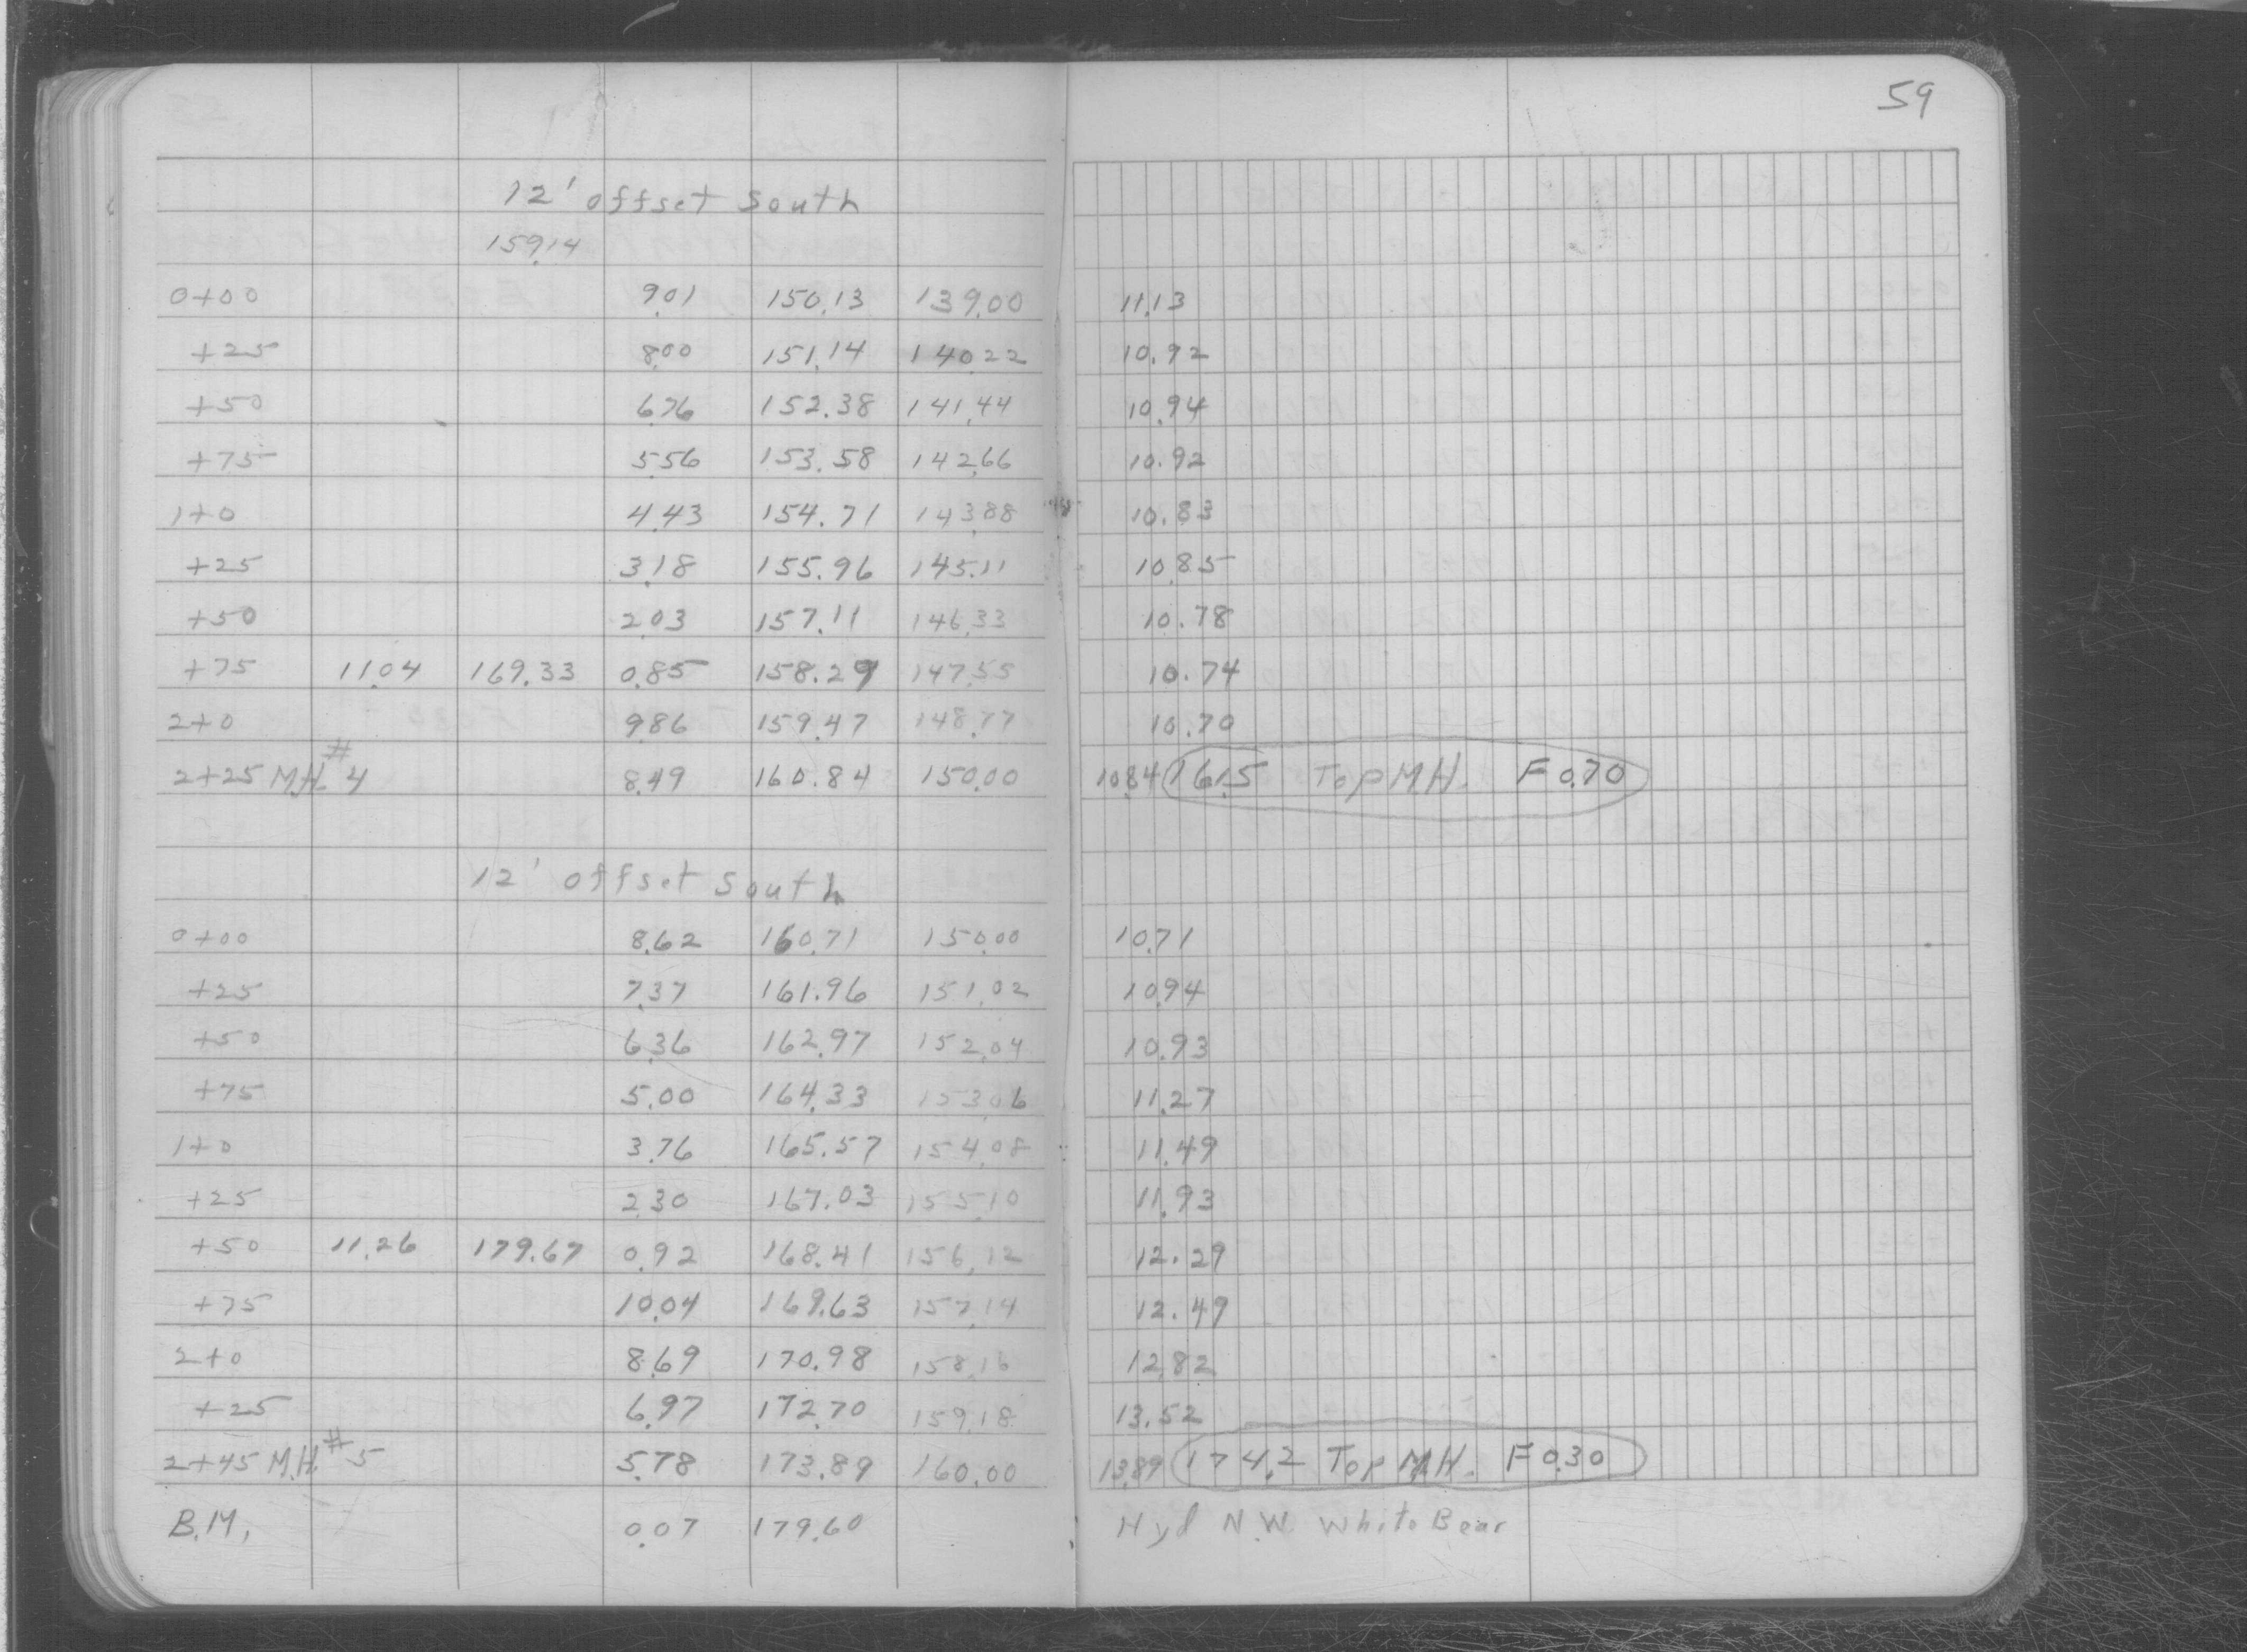 59
12' offset South
159.14
0+00 9.01 150.13 139.00 11.13
+25 8.00 151.14 140.22 10.92
+50 6.76 152.38 141.44 10.94
+75 5.56 153.58 142.66 10.92
1+0 4.43 154.71 143.88 10.83
+25 3.18 155.96 145.11 10.85
+50 2.03 157.11 146.33 10.78
+75 11.04 169.33 0.85 158.29 147.55 10.74
2+0 9.86 159.47 148.77 10.70
2+25 M.H. #4 8.49 160.84 150.00 10.84 161.5 Top M.H. F 0.70
12' offset South
0+00 8.62 160.71 150.00 10.71
+25 7.37 161.96 151.02 10.94
+50 6.36 162.97 152.04 10.93
+75 5.00 164.33 153.06 11.27
1+0 3.76 165.57 154.08 11.49
+25 2.30 167.03 155.10 11.93
+50 11.26 179.67 0.92 168.41 156.12 12.29
+75 10.04 169.63 157.14 12.49
2+0 8.69 170.98 158.16 12.82
+25 6.97 172.70 159.18 13.52
2+45 M.H. #5 5.78 173.89 160.00 13.89 174.2 Top M.H. F 0.30
B.M. 0.07 179.60 Hyd N.W. White Bear